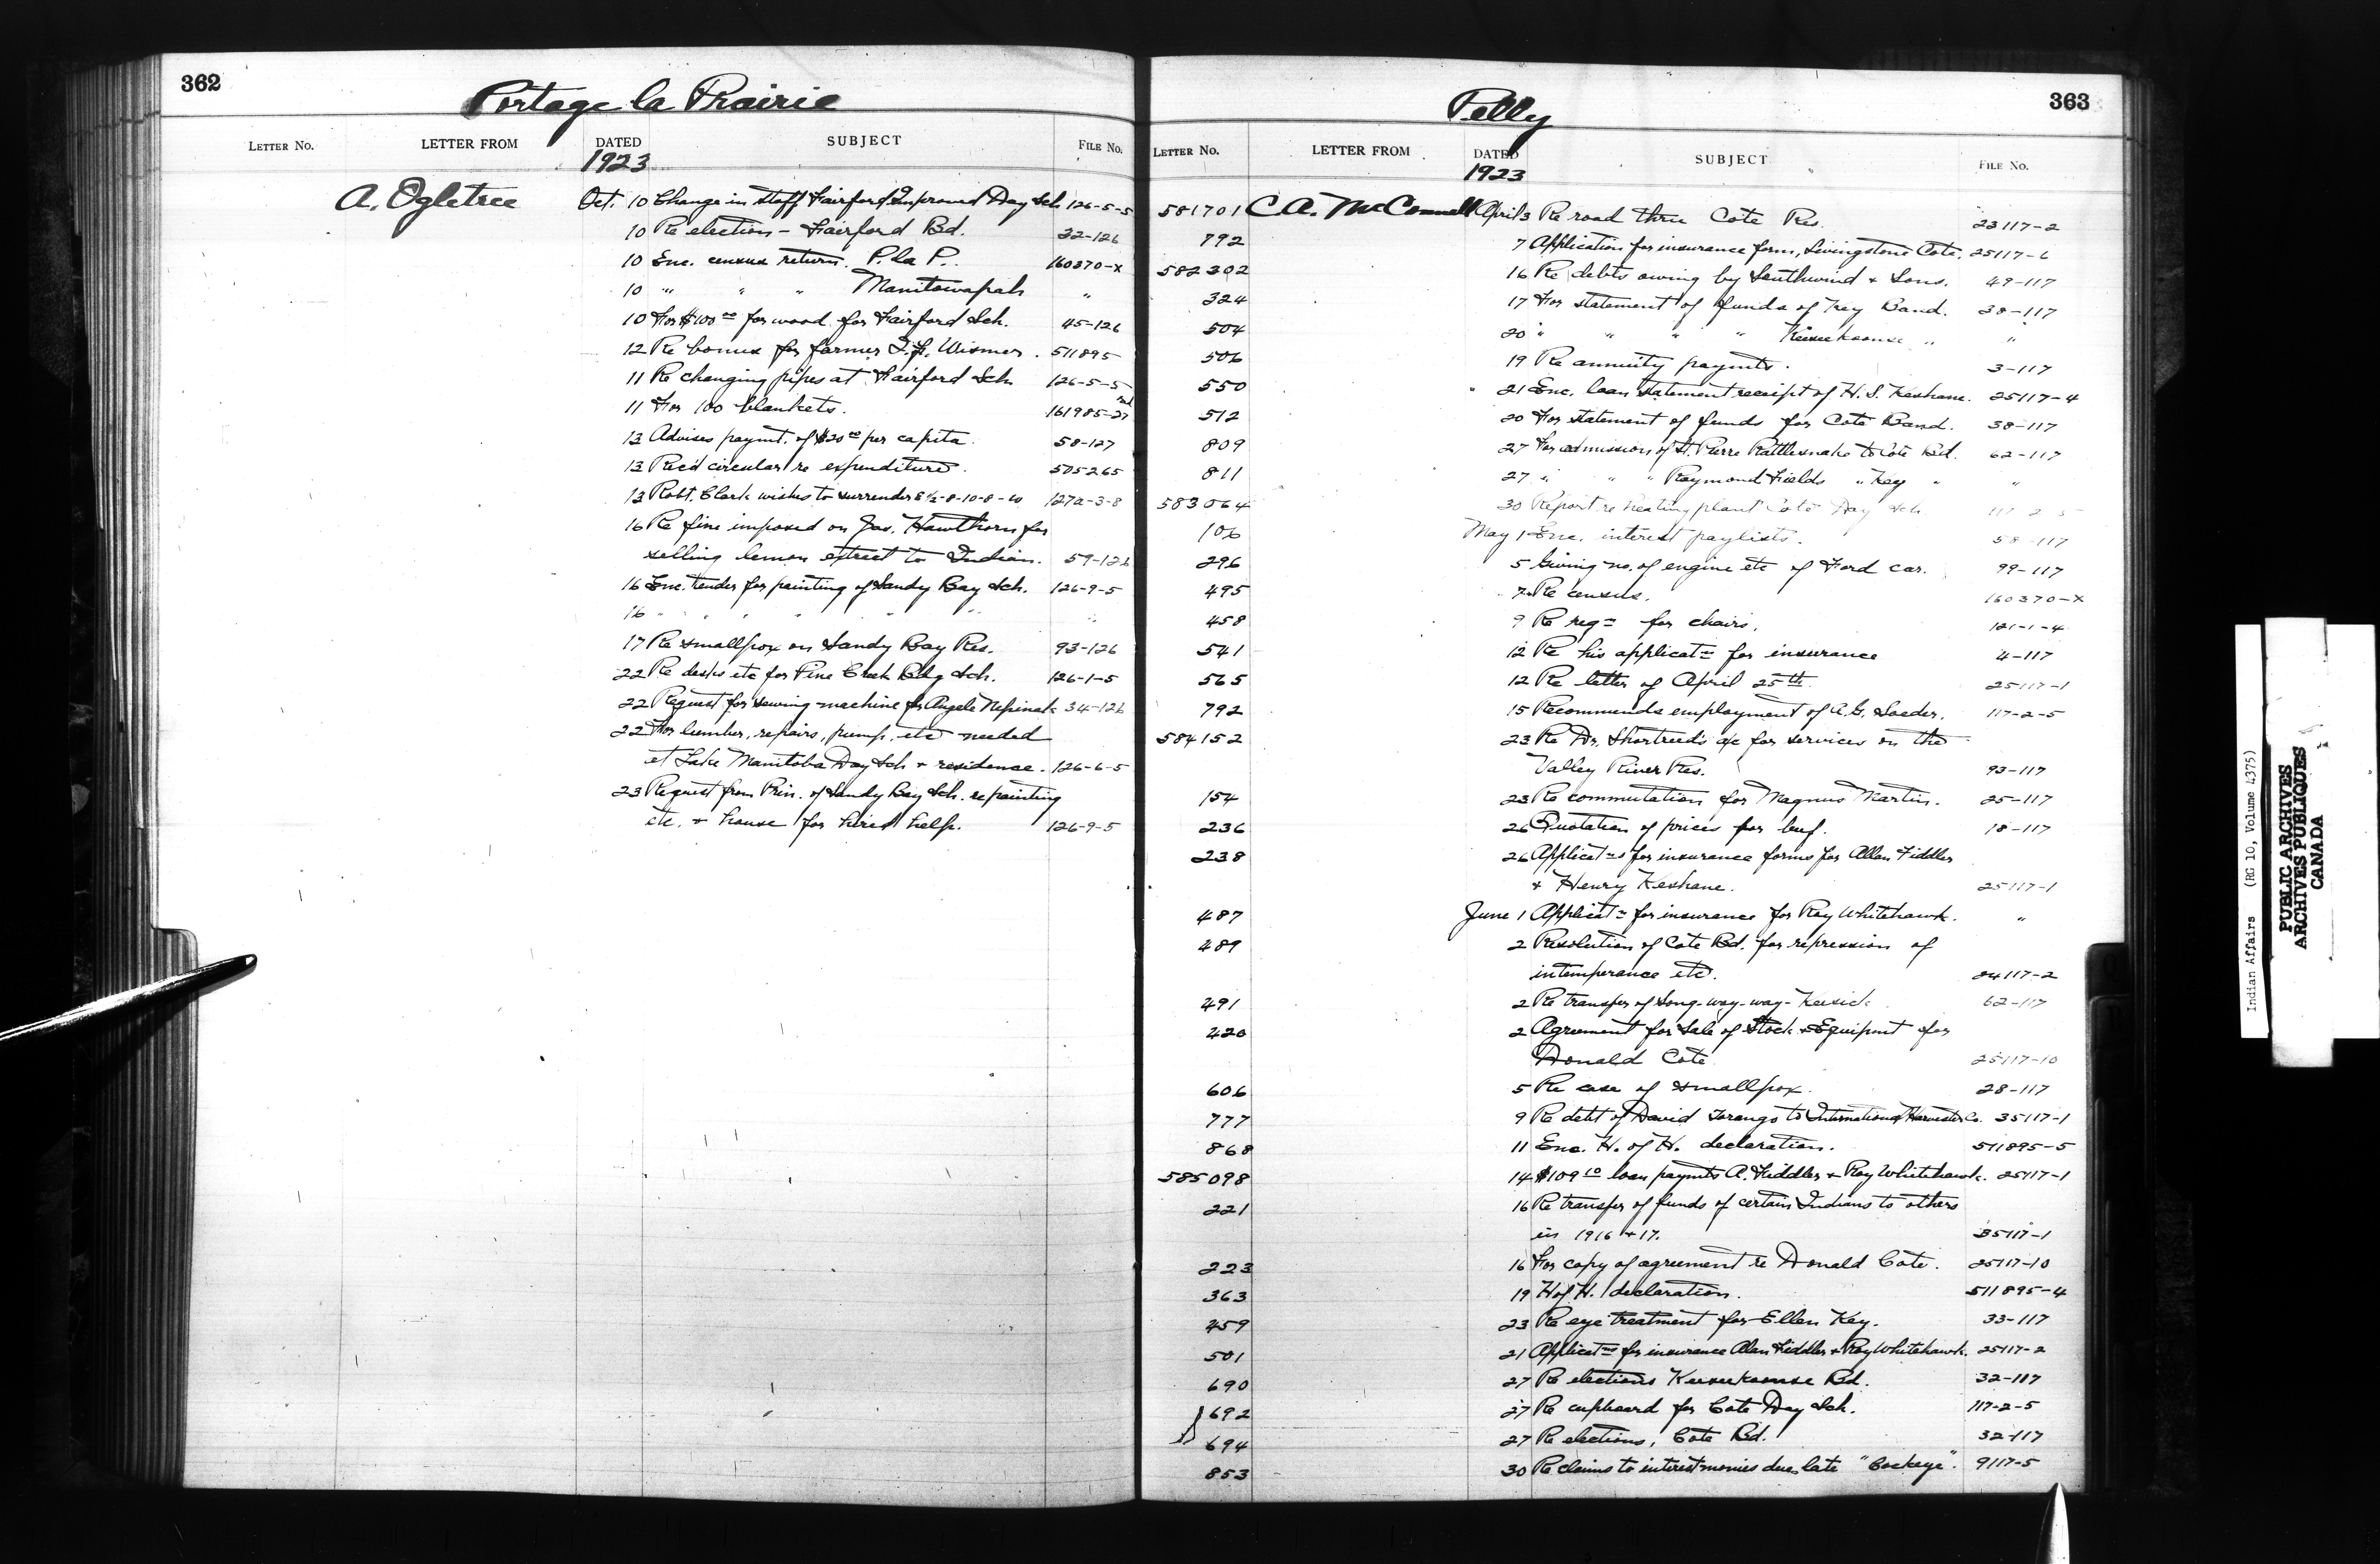 362
Portage la Prairie
LETTER No. LETTER FROM DATED SUBJECT FILE No.
1923
A. Ogletree Oct. 10 Change in staff Fairford Improved Day Sch 126-5-5
10 Re election - Fairford Bd. 32-126
10 Enc. census return. P. la P. 160370-X
10 " " " Manitowapah "
10 For $100 00 for wood for Fairford Sch. 45-126
12 Re bonus for farmer Wismer. 511895
11 Re changing pipes at Fairford Sch 126-5-5
11 For 100 blankets. 161985-27
13 Advises paymt. of $20 00 per capita. 58-127
13 Rec'd circular re expenditure. 505265
13 Robt. Clark wishes to surrender E½-8-10-8-W 127a-3-8
16 Re fine imposed on Jas. Hawthorn for
selling lemon extract to Indian. 59-126
16 Enc. tender for painting of Sandy Bay Sch. 126-9-5
16 " " " " " " "
17 Re smallpox on Sandy Bay Res. 93-126
22 Re desks etc for Pine Creek Bdg Sch. 126-1-5
22 Request for sewing machine for Angele Nepinak 34-126
22 For lumber, repairs, pump, etc needed
at Lake Manitoba Day Sch + residence. 126-6-5
23 Request from Prin. of Sandy Bay Sch. re painting
etc. + house for hired help. 126-9-5
363
Pelly
LETTER No. LETTER FROM DATED SUBJECT FILE No.
1923
581701 C.A. McConnell April 3 Re road thru Cote Res. 23117-2
792 7 Application for insurance form, Livingstone Cote. 25117-6
582302 16 Re debts owing by Southwind + Sons. 49-117
324 17 For statement of funds of Key Band. 38-117
504 20 " " " " Keeseekoonse " "
506 19 Re annuity paymts. 3-117
550 21 Enc. loan statement receipt of H. S. Keshane. 25117-4
512 20 For statement of funds for Cote Band. 38-117
809 27 For admission of St. Pierre Rattlesnake to Cote Bd. 62-117
811 27 " " " Raymond Fields " Key " "
583064 30 Report re heating plant Cote Day Sch 117-2-5
106 May 1 Enc. interest paylists. 58-117
296 5 Giving no. of engine etc of Ford car. 99-117
495 7 Re census. 160370-X
458 9 Re reqn for chairs. 121-1-4
541 12 Re his applicatn for insurance 4-117
565 12 Re letter of April 25th. 25117-1
792 15 Recommends employment of A.G. Soeder. 117-2-5
584152 23 Re Dr. Shortreed's a/c for services on the
Valley River Res. 93-117
154 23 Re commutation for Magnus Martin. 25-117
236 26 Quotation of prices for beef. 18-117
238 26 Applicatns for insurance forms for Allan Fiddler
+ Henry Keshane. 25117-1
487 June 1 Applicatn for insurance for Roy Whitehawk. "
489 2 Resolution of Cote Bd. for repression of
intemperance etc. 84117-2
491 2 Re transfer of Song-way-way-Keesick 62-117
420 2 Agreement for Sale of Stock + Equipmt for
Donald Cote 25117-10
606 5 Re case of smallpox. 28-117
777 9 Re debt of David to International Harvester Co. 35117-1
868 11 Enc. H. of H. declaration. 511895-5
585098 14 $109 10 loan paymts A. Fiddler + Roy Whitehawk. 25117-1
221 16 Re transfer of funds of certain Indians to others
in 1916 + 17. 35117-1
223 16 For copy of agreement re Donald Cote. 25117-10
363 19 H of H. declaration. 511895-4
459 23 Re eye treatment for Ellen Key. 33-117
501 21 Applicatns for insurance Alan Fiddler + Roy Whitehawk. 25117-2
690 27 Re elections Keeseekoonse Bd. 32-117
692 27 Re cupboard for Cote Day Sch. 117-2-5
694 27 Re elections, Cote Bd. 32-117
853 30 Re claims to interest monies due late "Cockeye". 9117-5
Indian Affairs (RG 10, Volume 4375)
PUBLIC ARCHIVES
ARCHIVES PUBLIQUES
CANADA